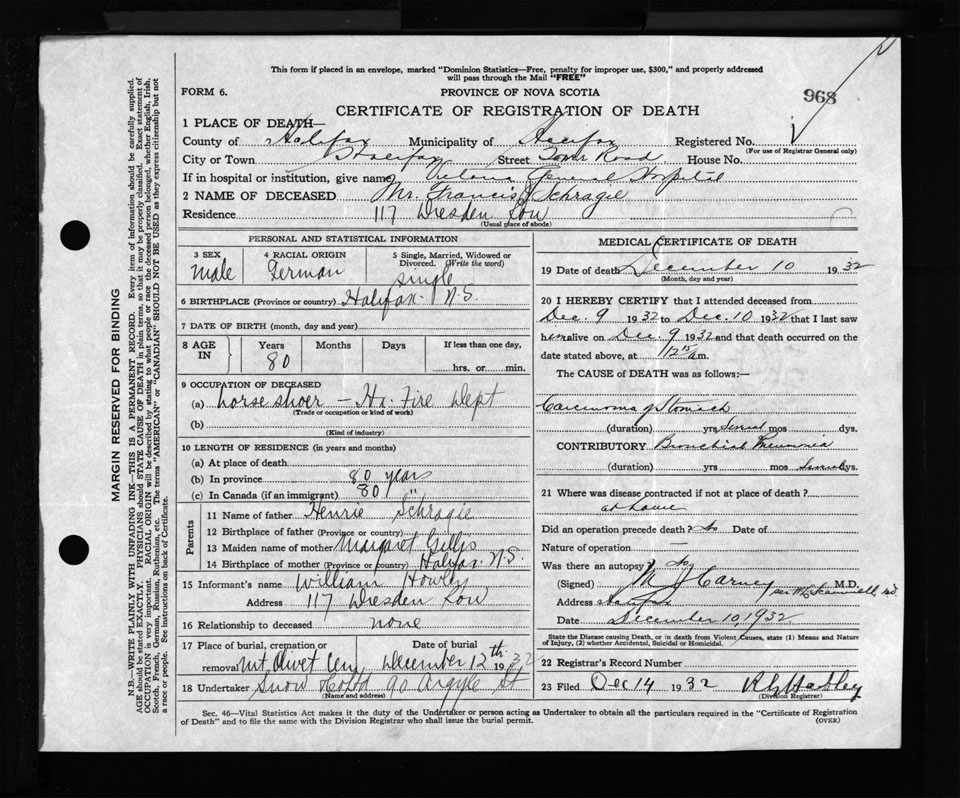 This form if placed in an envelope, marked "Dominion Statistics—Free, penalty for improper use, $300," and properly addressed
will pass through the Mail "FREE"
FORM 6.
PROVINCE OF NOVA SCOTIA
968
CERTIFICATE OF REGISTRATION OF DEATH
1 PLACE OF DEATH—
County of Halifax Municipality of Halifax Registered No.
(For use of Registrar General only)
City or Town Halifax Street Tower Road House No.
If in hospital or institution, give name Victoria General Hospital
2 NAME OF DECEASED Mr. Francis J Schragie
Residence 117 Dresden Row
(Usual place of abode)
PERSONAL AND STATISTICAL INFORMATION
3 SEX male
4 RACIAL ORIGIN German
5 Single, Married, Widowed or Divorced. (Write the word) single
6 BIRTHPLACE (Province or country) Halifax N.S.
7 DATE OF BIRTH (month, day and year)
8 AGE IN Years 80 Months Days If less than one day, hrs. or min.
9 OCCUPATION OF DECEASED
(a) horse shoer – Hx. Fire Dept
(Trade or occupation or kind of work)
(b)
(Kind of industry)
10 LENGTH OF RESIDENCE (in years and months)
(a) At place of death
(b) In province 80 years
(c) In Canada (if an immigrant) 80 "
Parents
11 Name of father Henrie Schragie
12 Birthplace of father (Province or country)
13 Maiden name of mother Margaret Gillis
14 Birthplace of mother (Province or country) Halifax N.S.
15 Informant's name William Howley
Address 117 Dresden Row
16 Relationship to deceased none
17 Place of burial, cremation or removal Mt Olivet Cem Date of burial December 12th 1932
18 Undertaker Snow & Co Ltd 90 Argyle St
(Name and address)
MEDICAL CERTIFICATE OF DEATH
19 Date of death December 10 1932
(Month, day and year)
20 I HEREBY CERTIFY that I attended deceased from
Dec. 9 1932 to Dec. 10 1932 that I last saw
him alive on Dec 9 1932 and that death occurred on the
date stated above, at 12 15 am.
The CAUSE OF DEATH was as follows:—
Carcinoma of Stomach
(duration) yrs several mos dys.
CONTRIBUTORY Bronchial Pneumonia
(duration) yrs mos several dys.
21 Where was disease contracted if not at place of death?
at home
Did an operation precede death? no Date of
Nature of operation —
Was there an autopsy no
(Signed) M J Carney M.D.
Address Halifax
Date December 10, 1932
State the Disease causing Death, or in death from Violent Causes, state (1) Means and Nature
of Injury, (2) whether Accidental, Suicidal or Homicidal.
22 Registrar's Record Number
23 Filed Dec 14 1932
(Division Registrar)
Sec. 46—Vital Statistics Act makes it the duty of the Undertaker or person acting as Undertaker to obtain all the particulars required in the "Certificate of Registration
of Death" and to file the same with the Division Registrar who shall issue the burial permit.
(OVER)
MARGIN RESERVED FOR BINDING
N.B.—WRITE PLAINLY WITH UNFADING INK—THIS IS A PERMANENT RECORD. Every item of information should be carefully supplied.
AGE should be stated EXACTLY. PHYSICIANS should STATE CAUSE OF DEATH in plain terms, so that it may be properly classified. Exact statement of
OCCUPATION is very important. RACIAL ORIGIN will be described by stating to what people or race the deceased person belonged, whether English, Irish,
Scotch, French, German, Russian, Ruthenian, etc. The terms "AMERICAN" or "CANADIAN" SHOULD NOT BE USED as they express citizenship but not
a race or people. See instructions on back of Certificate.